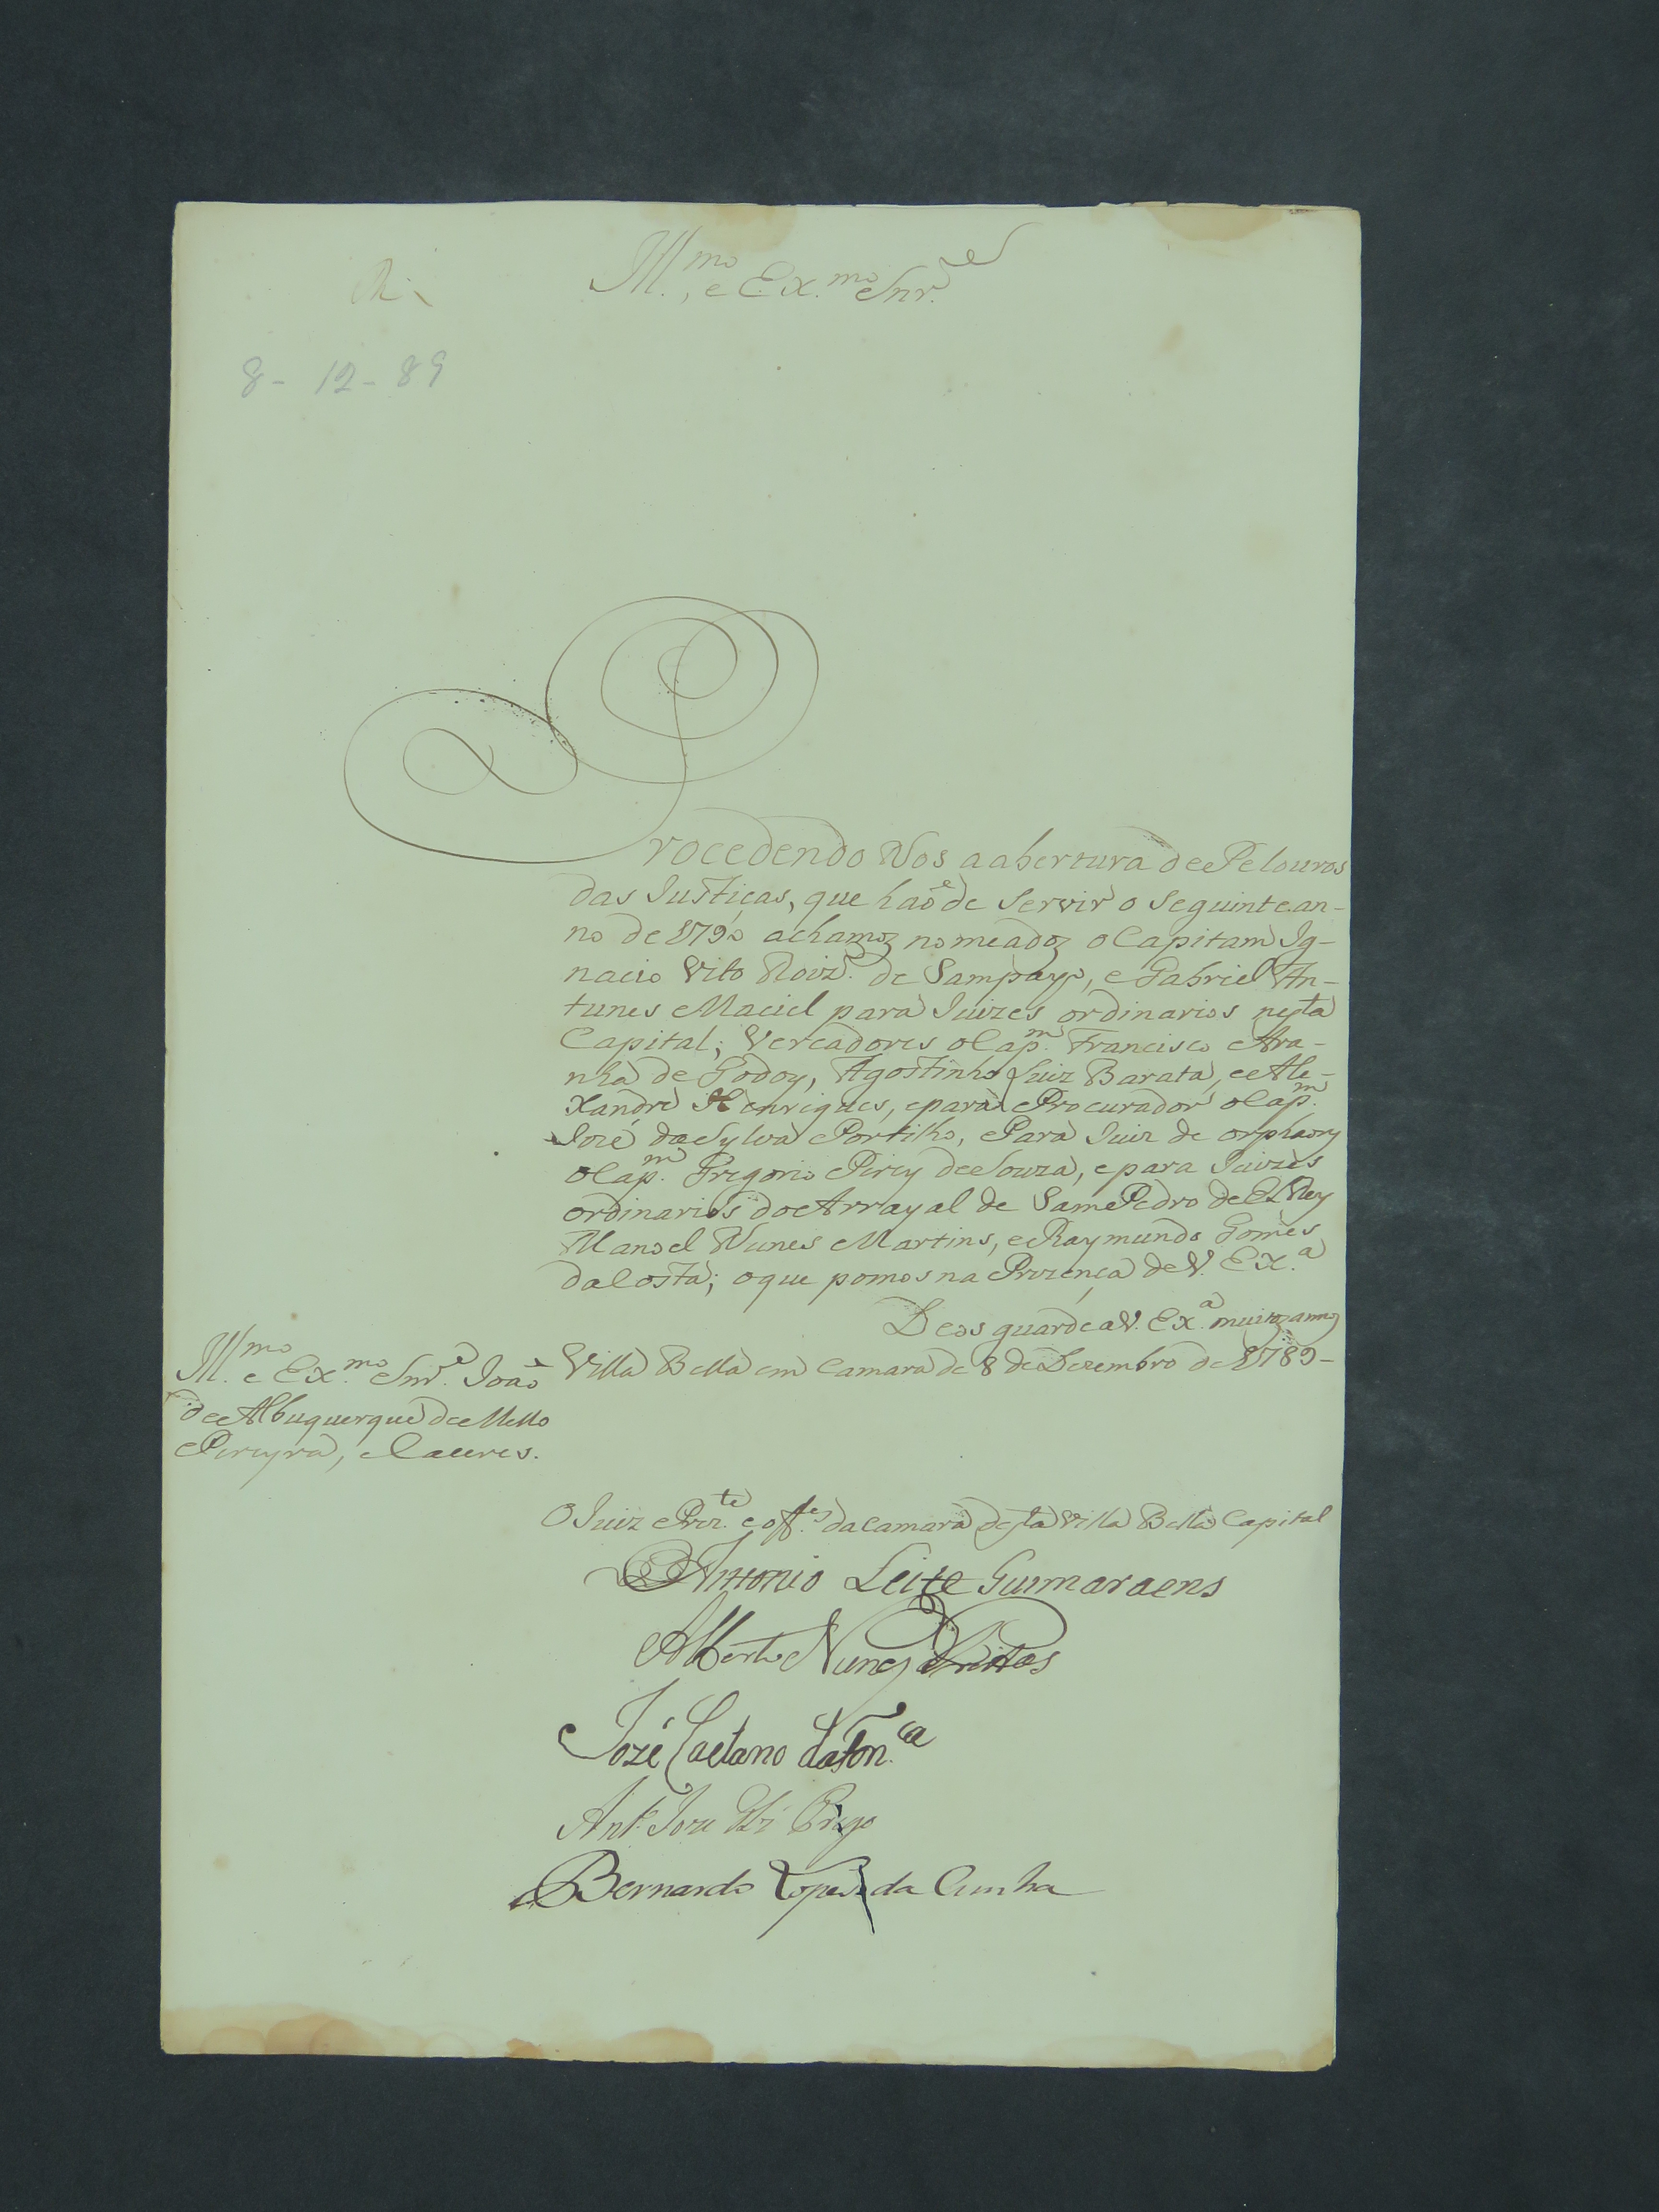 Ill.mo, e Ex.mo Snr.
8 - 12 - 89
Procedendo Nos a abertura de Pelouros
das Justiças, que haõ de Servir o Seguinte an-
no de 1790 achamos nomeados o Capitam Ig-
nacio Vito Roiz. de Sampayo, e Gabriel An-
tunes Maciel para Juizes ordinarios nesta
Capital; Vereadores o Cap.m Francisco Ara-
nha de Godoy, Agostinho Luiz Barata, e Ale-
xandre Henriques, e para Procurador o Cap.m
Jozé da Sylva Portilho, e Para Juiz de orphaons
o Cap.m Gregorio Pirey de Souza, e para Juizes
ordinarios do Arrayal de Sam Pedro de El Rey
Manoel Nunes Martins, e Raymundo Gomes
da Costa; o que pomos na Prezença de V. Ex.a
Deos guarde a V. Ex.a muitos annos
Villa Bella em Camara de 8 de Dezembro de 1789-
Ill.mo e Ex.mo Snr. Joaõ
de Albuquerque de Mello
Pereyra, e Caceres.
O Juiz Prez.te e off.es da Camara desta Villa Bella Capital
Antonio Leite Guimaraens
Alberto Nunes
Jozé Caetano da Fon.ca
Ant.o Joze
Bernardo Lopes da Cunha